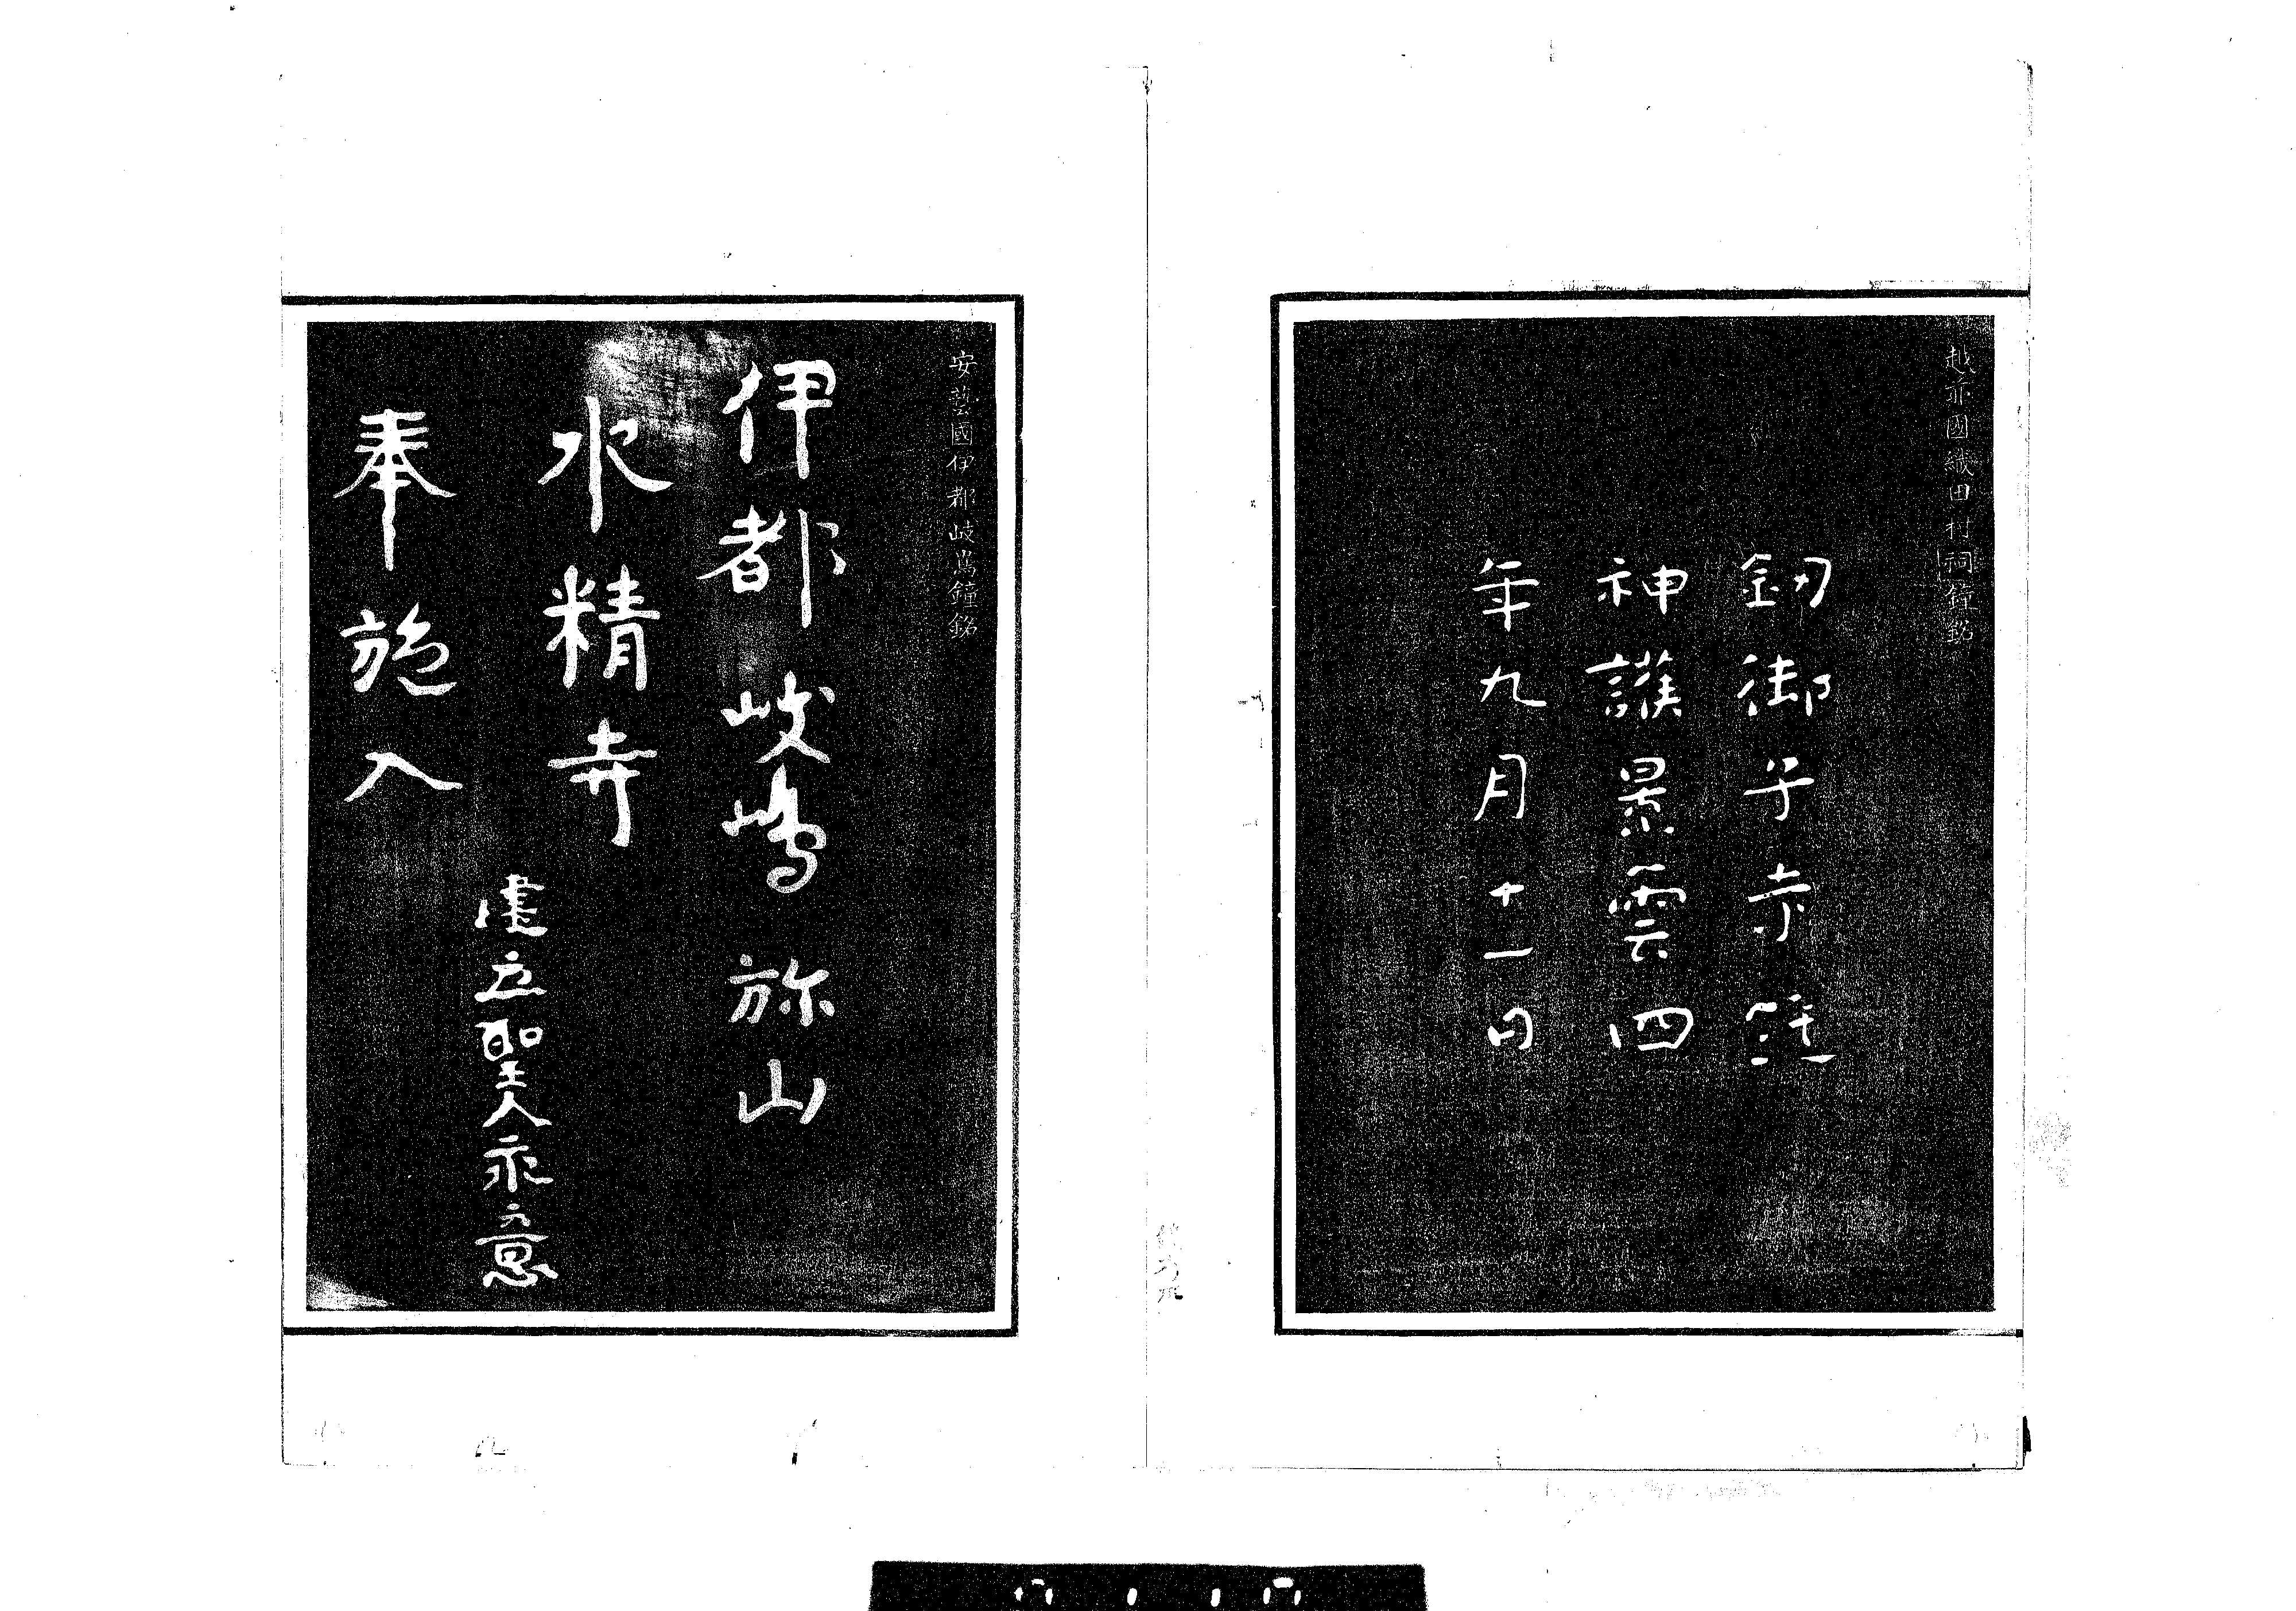 越前國織田村祠鐘銘
釼御子寺鐘
神護景雲四
年九月十一日
安藝國伊都岐嶌鐘銘
伊都岐嶋弥山
水精寺
建立聖人永意
奉施入